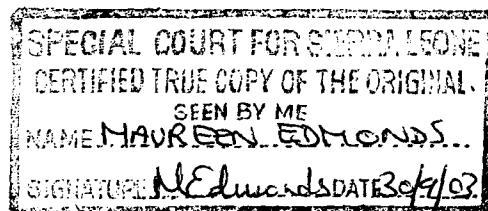 SPECIAL COURT FOR SIERRA LEONE
CERTIFIED TRUE COPY OF THE ORIGINAL.
SEEN BY ME
NAME MAUREEN EDMONDS
SIGNATURE MEdmonds DATE 30/9/03